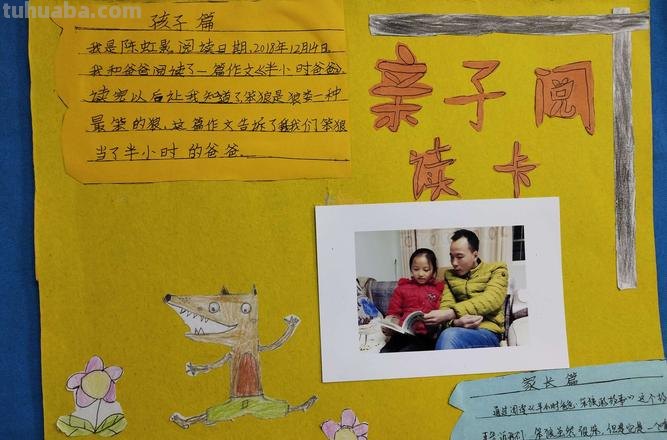 tuhuaba.com
孩子篇
我是陈虹影阅读日期.2018年12月14日.
我和爸爸阅读了一篇作文《半小时爸爸》
读完以后让我知道了笨狼是狼类一种
最笨的狼，这篇作文告诉了我们笨狼
当了半小时的爸爸
亲子阅
读卡
家长篇
通过阅读《半小时爸爸·笨狼的故事》这个故